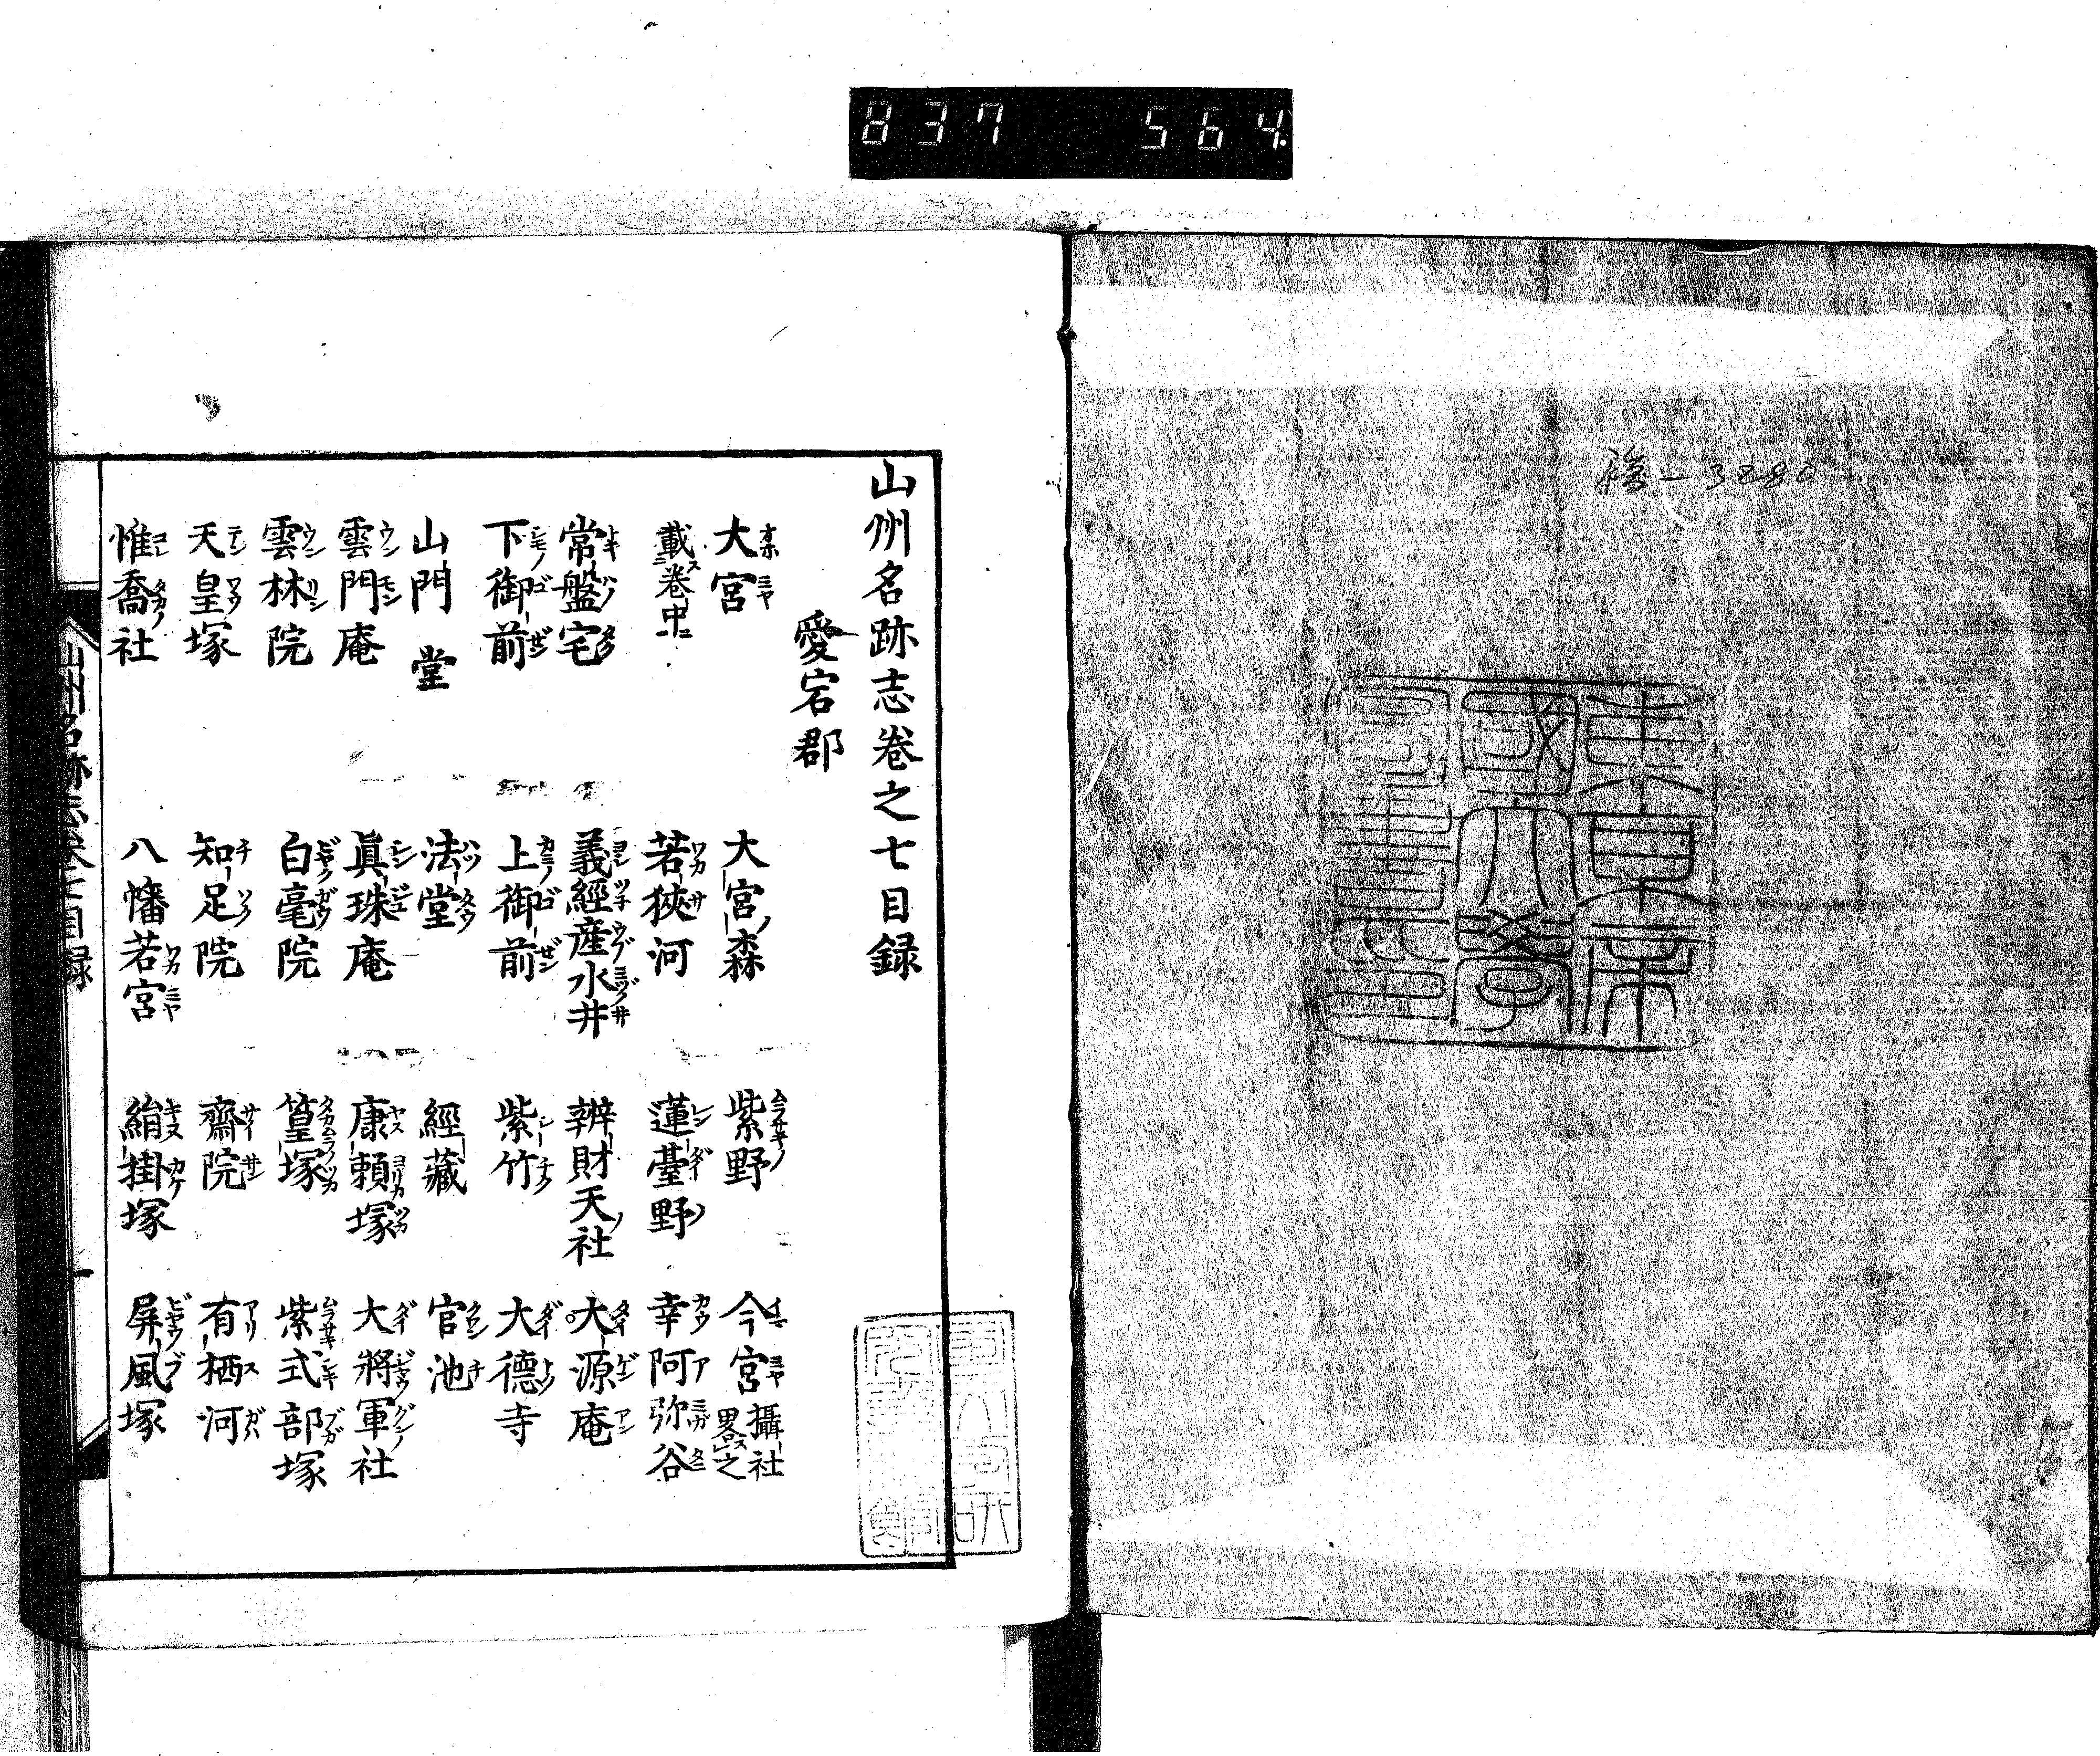 837 564.
-3280
東京帝
國大學
圖書印
山州名跡志卷之七目録
愛宕郡
大宮 大宮ノ森 紫野 今宮 攝社畧ス之
載ス卷中ニ 若狹河 蓮臺野 幸阿弥谷
常盤宅 義經産水井 辨財天社 大源庵
下御前 上御前 紫竹 大德寺
山門堂 法堂 經藏 官池
雲門庵 眞珠庵 康頼塚 大將軍社
雲林院 白毫院 篁塚 紫式部塚
天皇塚 知足院 齋院 有栖河
惟喬社 八幡若宮 絹掛塚 屏風塚
山州名跡志卷七目録 一